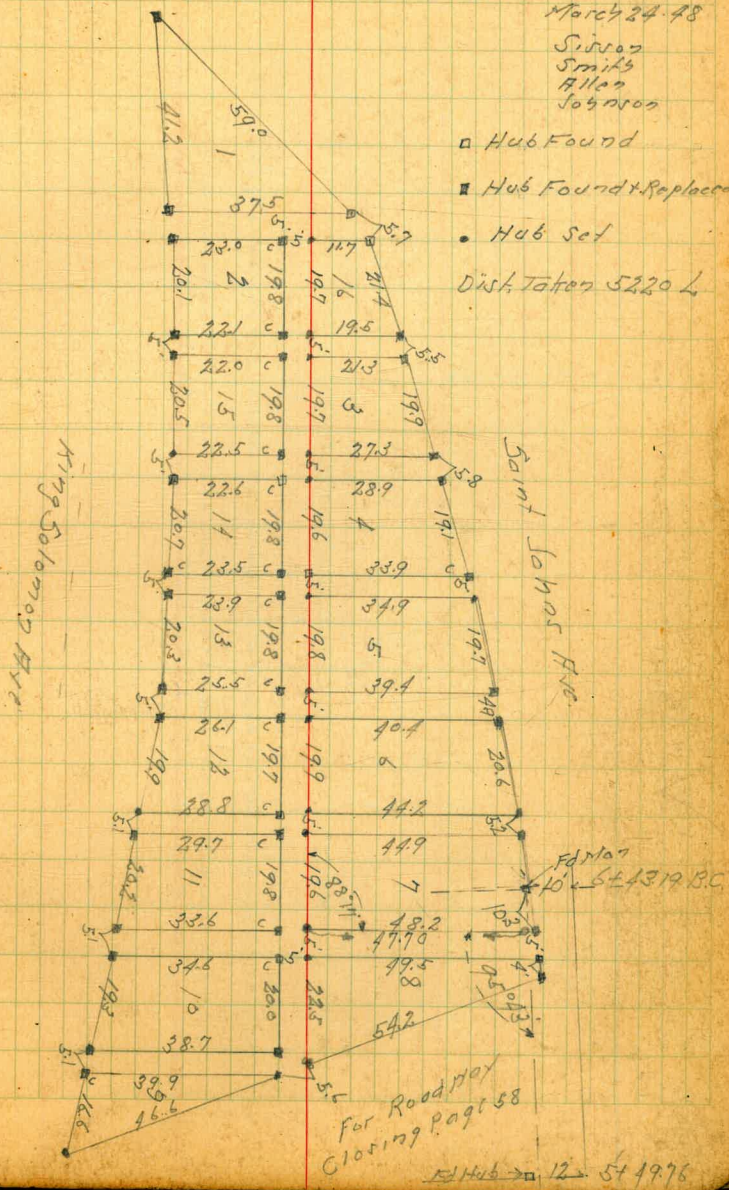 March 24-48
Sisson
Smith
Allen
Johnson
□ Hub Found
■ Hub Found & Replaced
• Hub Set
Dist. Taken 5220 L
41.2
59.0
1
37.5
5.
5.7
23.0 c 5 11.7
20.1 2 19.8 19.7 16 21.4
22.1 c 19.5
5. 5. 5.5
22.0 c 21.3
20.5 15 19.8 19.7 3 19.9
22.5 c 27.3
5. 5. 5.8
22.6 c 28.9
20.7 14 19.8 19.6 4 19.1
c 23.5 c 33.9 c
5. 5. 5
23.9 c 34.9
20.3 13 19.8 19.8 5 19.7
25.5 c 39.4
5. 5. 4.9
26.1 c 40.4
19.9 12 19.7 19.9 6 20.6
28.8 c 44.2
5.1 5. 5.2
29.7 c 44.9
20.3 11 19.8 19.6 7
Fd Mon
10' 5+43.19 B.C.
14.88
10.2
33.6 c 48.2
47.70
5.1 5. 5.
34.6 c 5 49.5
19.3 10 20.0 22.5 8 4.
54.2
38.7
5.1
c 39.9 5.6
9
16.6 46.6
King Solomon Ave.
Saint Johns Ave.
For Roadway
Closing Page 58
Fd Hub → □ 12 5+49.76